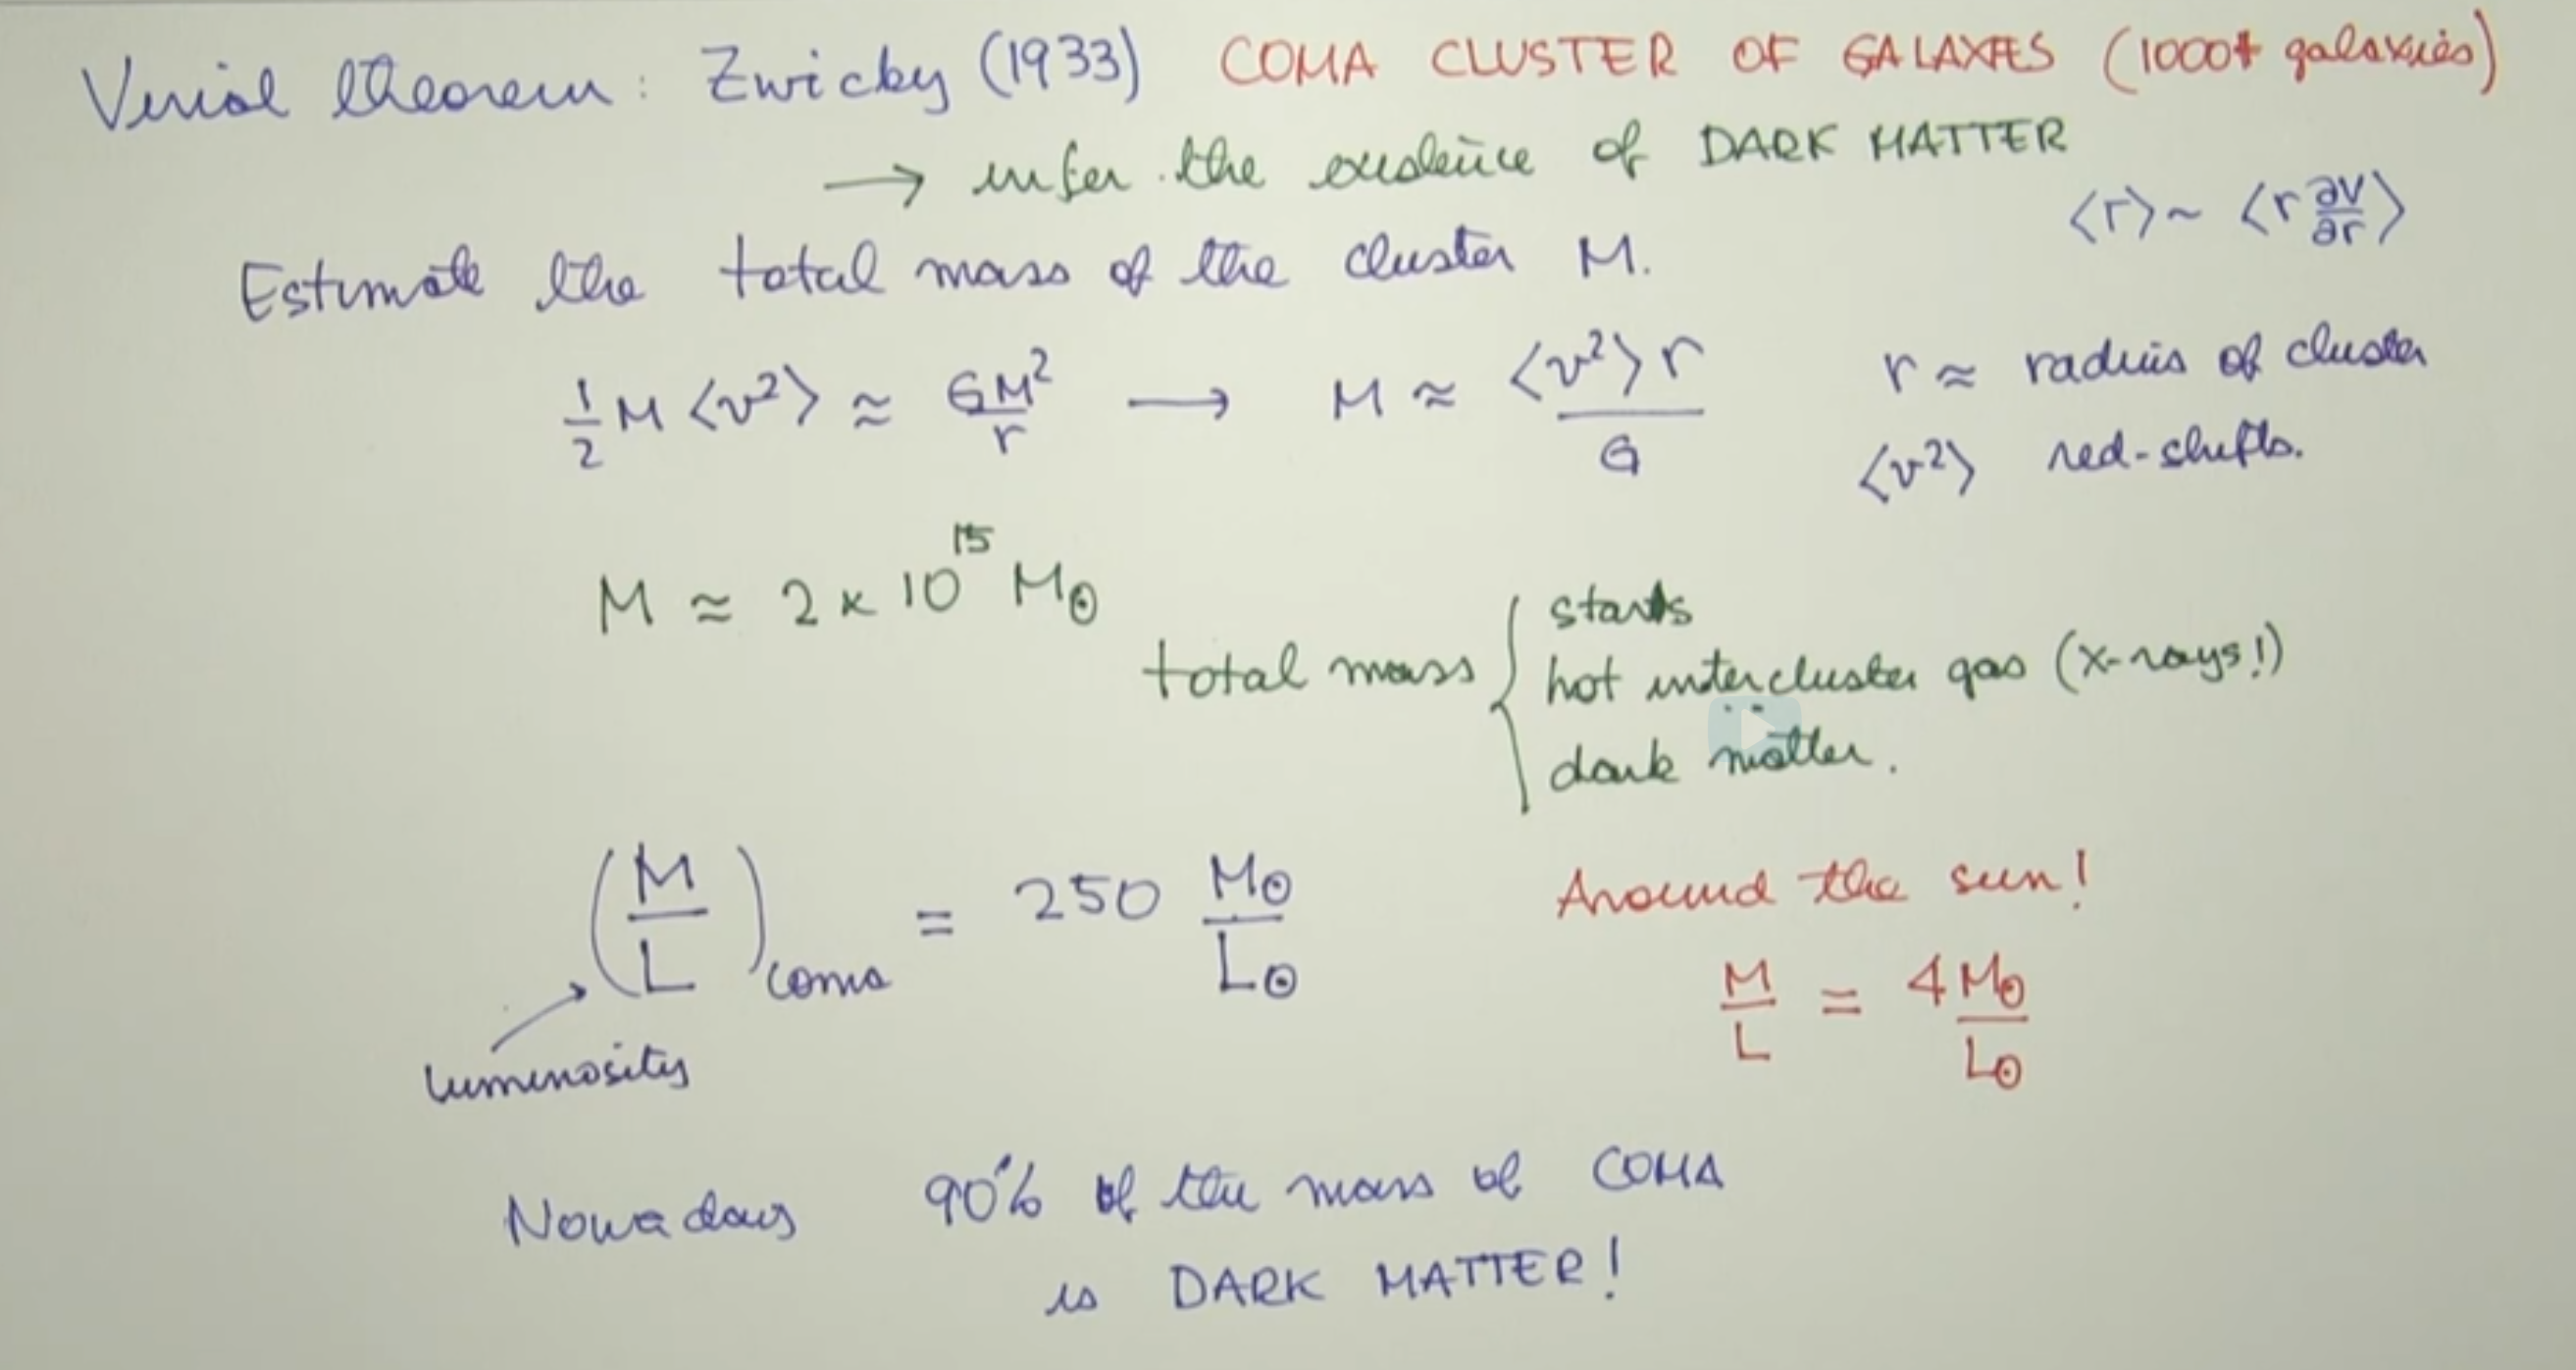 Virial theorem: Zwicky (1933) COMA CLUSTER OF GALAXIES (1000+ galaxies)
→ infer the existence of DARK MATTER
⟨T⟩ ~ ⟨r ∂V/∂r⟩
Estimate the total mass of the cluster M.
1/2 M ⟨v²⟩ ≈ GM²/r → M ≈ ⟨v²⟩ r / G
r ≈ radius of cluster
⟨v²⟩ red-shifts.
M ≈ 2 × 10¹⁵ M☉
total mass {
stars
hot intercluster gas (x-rays!)
dark matter.
(M/L)coma = 250 M☉/L☉
luminosity
Around the sun!
M/L = 4 M☉/L☉
Nowadays 90% of the mass of COMA
is DARK MATTER!